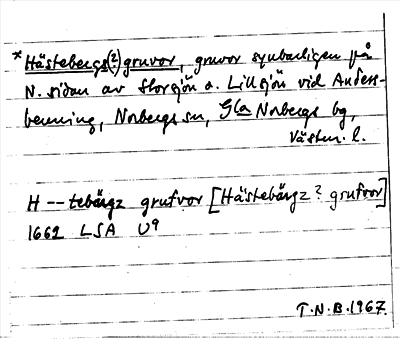 * Hästebergs(?) gruvor, gruvor synbarligen på
N. sidan av Storsjön o. Lillsjön vid Anders-
benning, Norbergs sn, Gla Norbergs bg,
Västm. l.
H--tebärgz grufvor [Hästebärgz? grufvor]
1662 LSA U9
T.N.B. 1967